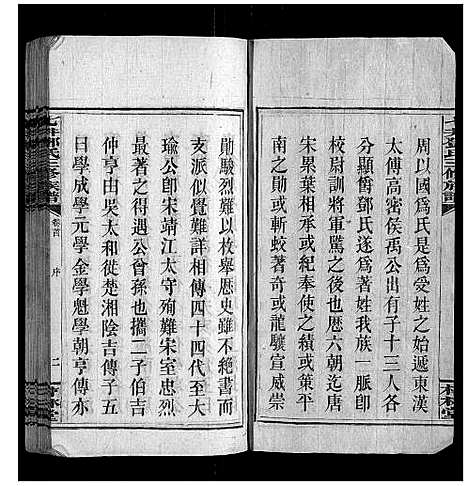 周以國爲氏是爲受姓之始遞東漢
太傅高密侯禹公出有子十三人各
分顯爵鄧氏遂蕃著焉我族一脈卽
校尉訓將軍騭之後也歷六朝迄唐
宋累葉相承或紀奉使之績或策平
南之勳或斬蛟著奇或龍驤宣威崇
勛駿烈難以枚舉歷史雖不絶書而
支派似覺難詳相傳四十四代分派
瑜公卽宋靖江太守殉難宋室忠烈
著之得遇公曾孫也攜二子伯吉
仲亨由吳太和徙楚湘陰吉傳子五
曰學成學元學金學魁學朝亨傳亦
鄧氏三修族譜
卷首
序
二